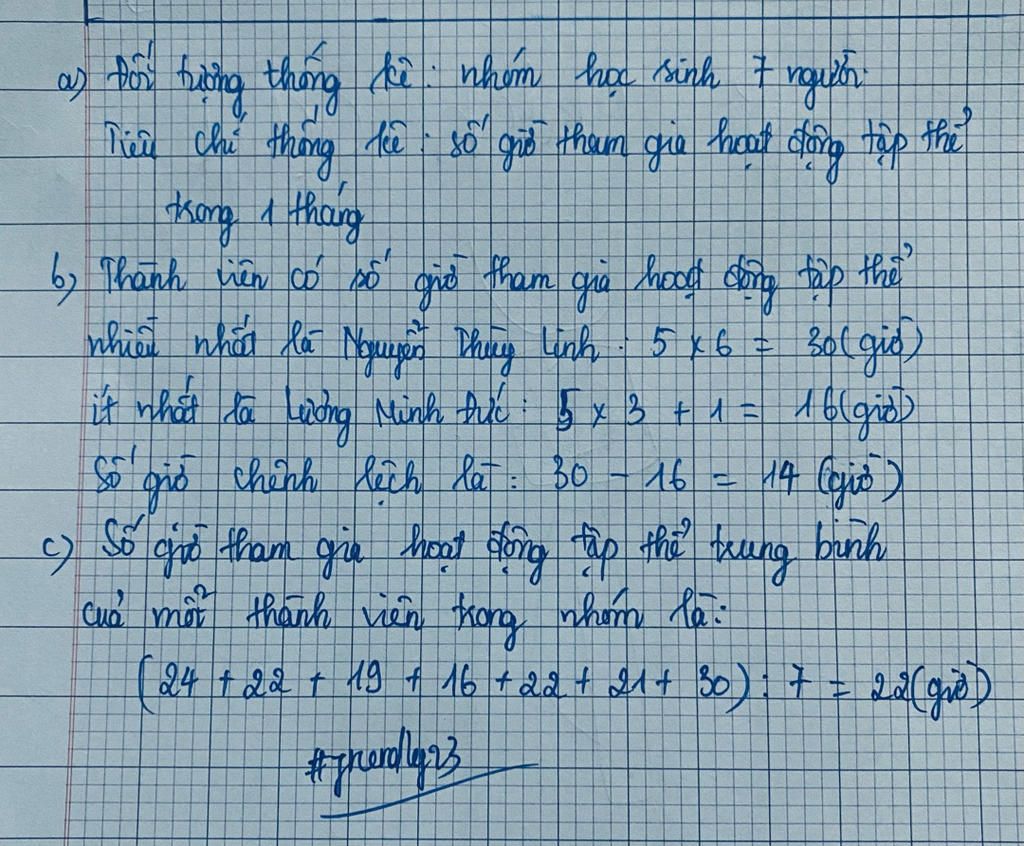 a) Đối tượng thống kê : nhóm học sinh 7 người.
Tiêu chí thống kê : số giờ tham gia hoạt động tập thể
trong 1 tháng
b) Thành viên có số giờ tham gia hoạt động tập thể
nhiều nhất là Nguyễn Thùy Linh : 5 x 6 = 30 (giờ)
ít nhất là Lương Minh Đức : 5 x 3 + 1 = 16 (giờ)
Số giờ chênh lệch là : 30 - 16 = 14 (giờ)
c) Số giờ tham gia hoạt động tập thể trung bình
của mỗi thành viên trong nhóm là :
(24 + 22 + 19 + 16 + 22 + 21 + 30) : 7 = 22 (giờ)